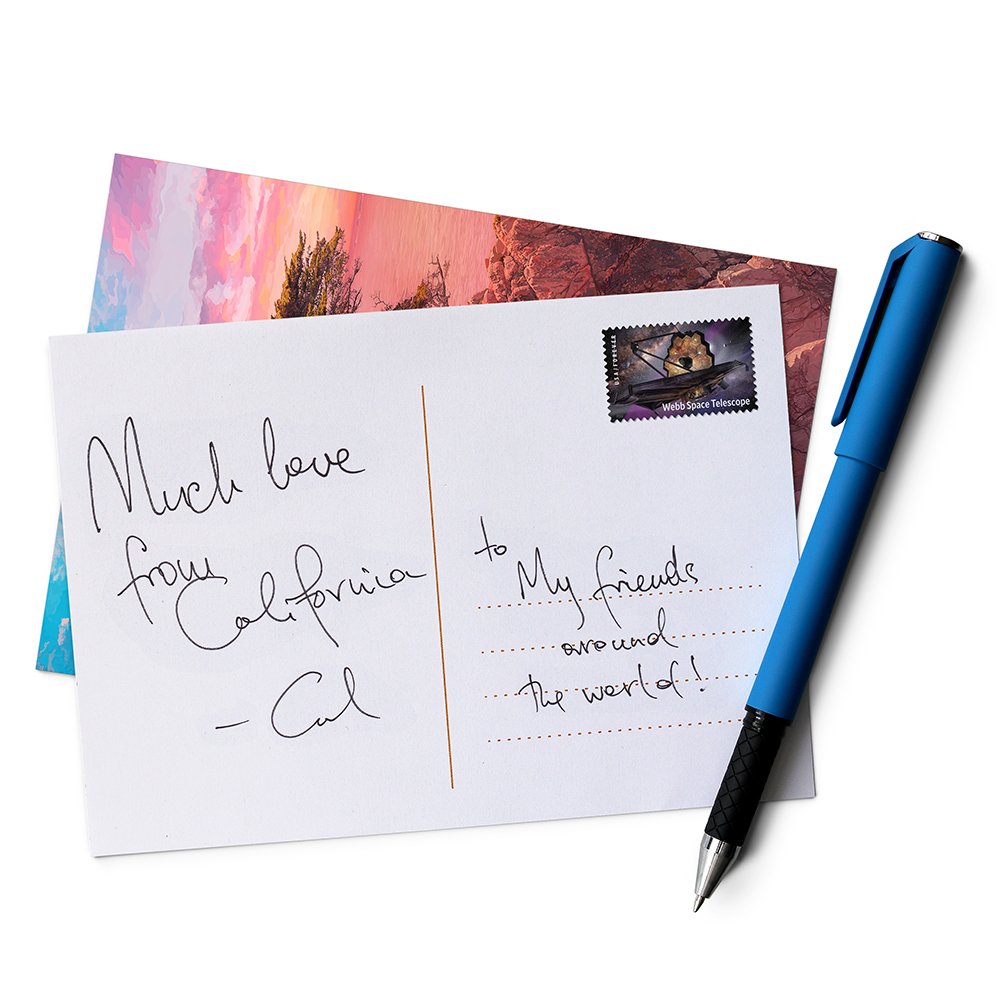 Much love
from
California
- Cal
Webb Space Telescope
to
My friends
around
the world!